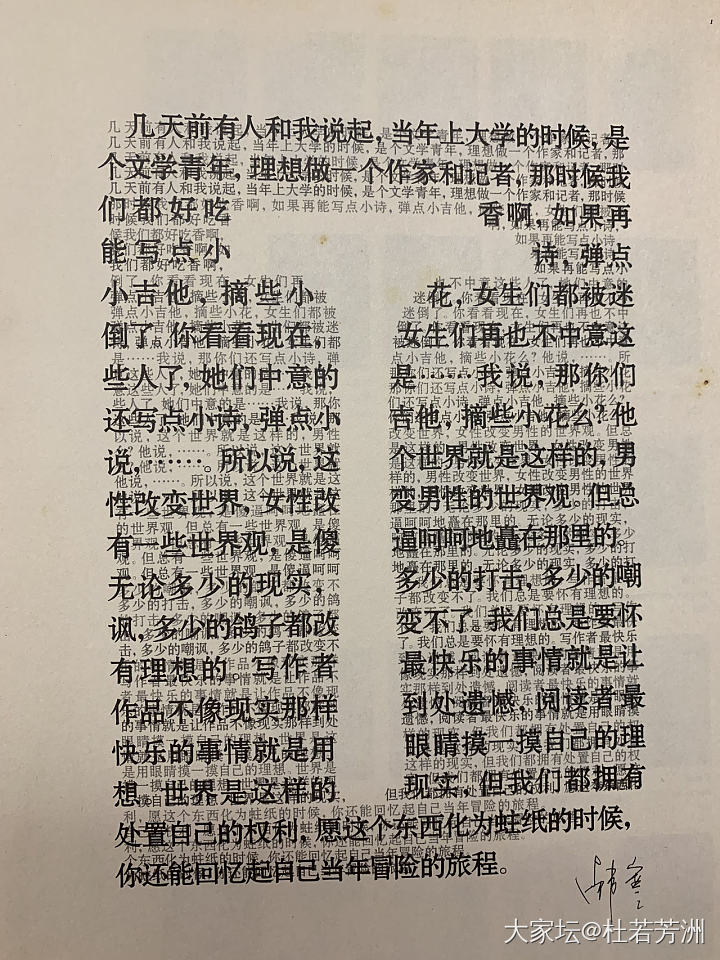 几天前有人和我说起，当年上大学的时候，是
个文学青年，理想做一个作家和记者，那时候我
们都好吃香啊，如果再
能写点小诗，弹点
小吉他，摘些小花，女生们都被迷
倒了。你看看现在，女生们再也不中意这
些人了，她们中意的是……我说，那你们
还写点小诗，弹点小吉他，摘些小花么？他
说，……。所以说，这个世界就是这样的，男
性改变世界，女性改变男性的世界观。但总
有一些世界观，是傻逼呵呵地矗在那里的。
无论多少的现实，多少的打击，多少的嘲
讽，多少的鸽子都改变不了。我们总是要怀
有理想的。写作者最快乐的事情就是让
作品不像现实那样到处遗憾，阅读者最
快乐的事情就是用眼睛摸一摸自己的理
想。世界是这样的现实，但我们都拥有
处置自己的权利，愿这个东西化为蛀纸的时候，
你还能回忆起自己当年冒险的旅程。
韩寒
大家坛@杜若芳洲